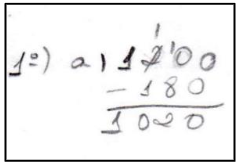 1
1º) a) 12¹00
- 180
1020